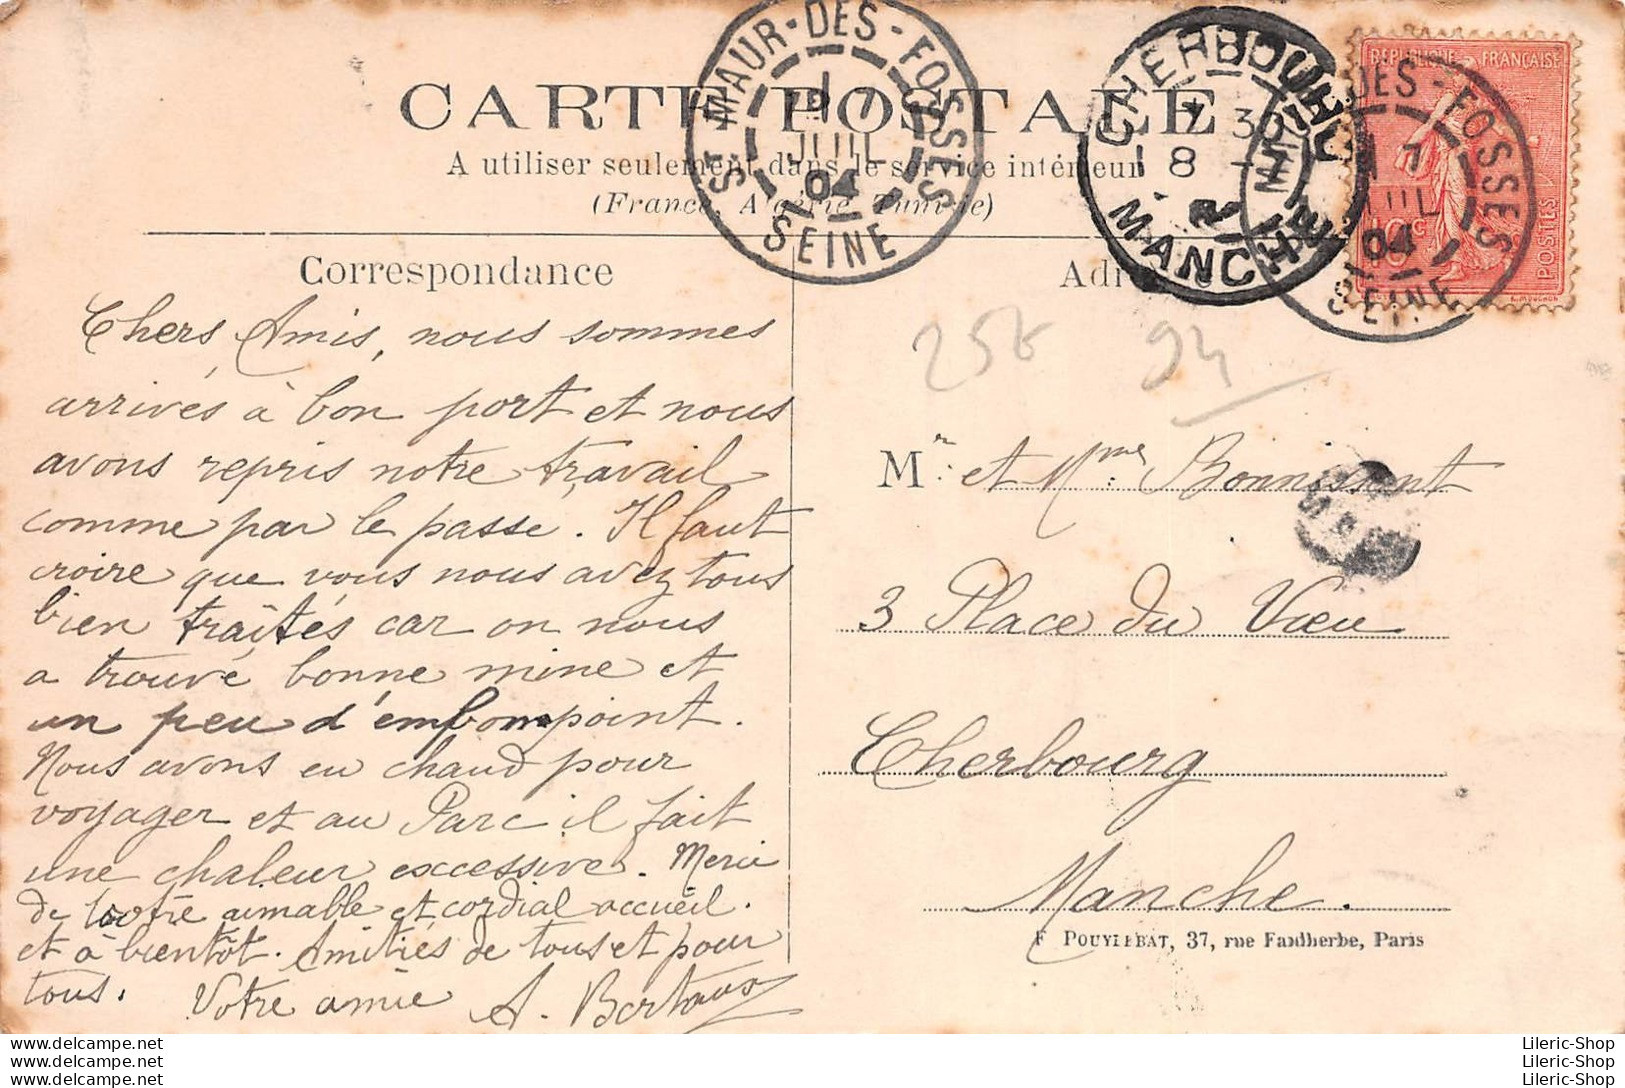 CARTE POSTALE
A utiliser seulement dans le service intérieur
(France, Algérie, Tunisie)
Correspondance
Chers Amis, nous sommes
arrivés à bon port et nous
avons repris notre travail
comme par le passe. Il faut
croire que vous nous avez tous
bien traités car on nous
a trouvé bonne mine et
un peu d'embonpoint.
Nous avons eu chaud pour
voyager et au Parc il fait
une chaleur excessive. Merci
de votre aimable et cordial accueil.
et à bientôt. Amitiés de tous et pour
tous. Votre amie A. Bertaux
ST MAUR-DES-FOSSÉS
1 7
JUIL
04
SEINE
CHERBOURG
7 30
18 -7
MANCHE
DES-FOSSÉS
1 7
JUIL
04
SEINE
REPUBLIQUE FRANÇAISE
10c
POSTES
L. MOUCHON
256 94
Mr et Mme Bonnissent
3 Place du Vœu
Cherbourg
Manche.
F. POUYLEBAT, 37, rue Faidherbe, Paris
Lileric-Shop
Lileric-Shop
Lileric-Shop
Lileric-Shop
Lileric-Shop
Lileric-Shop